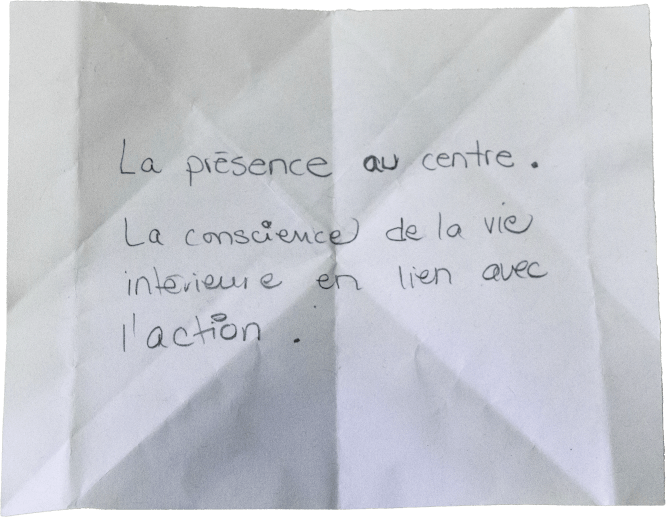 La présence au centre.
La conscience de la vie
intérieure en lien avec
l'action.